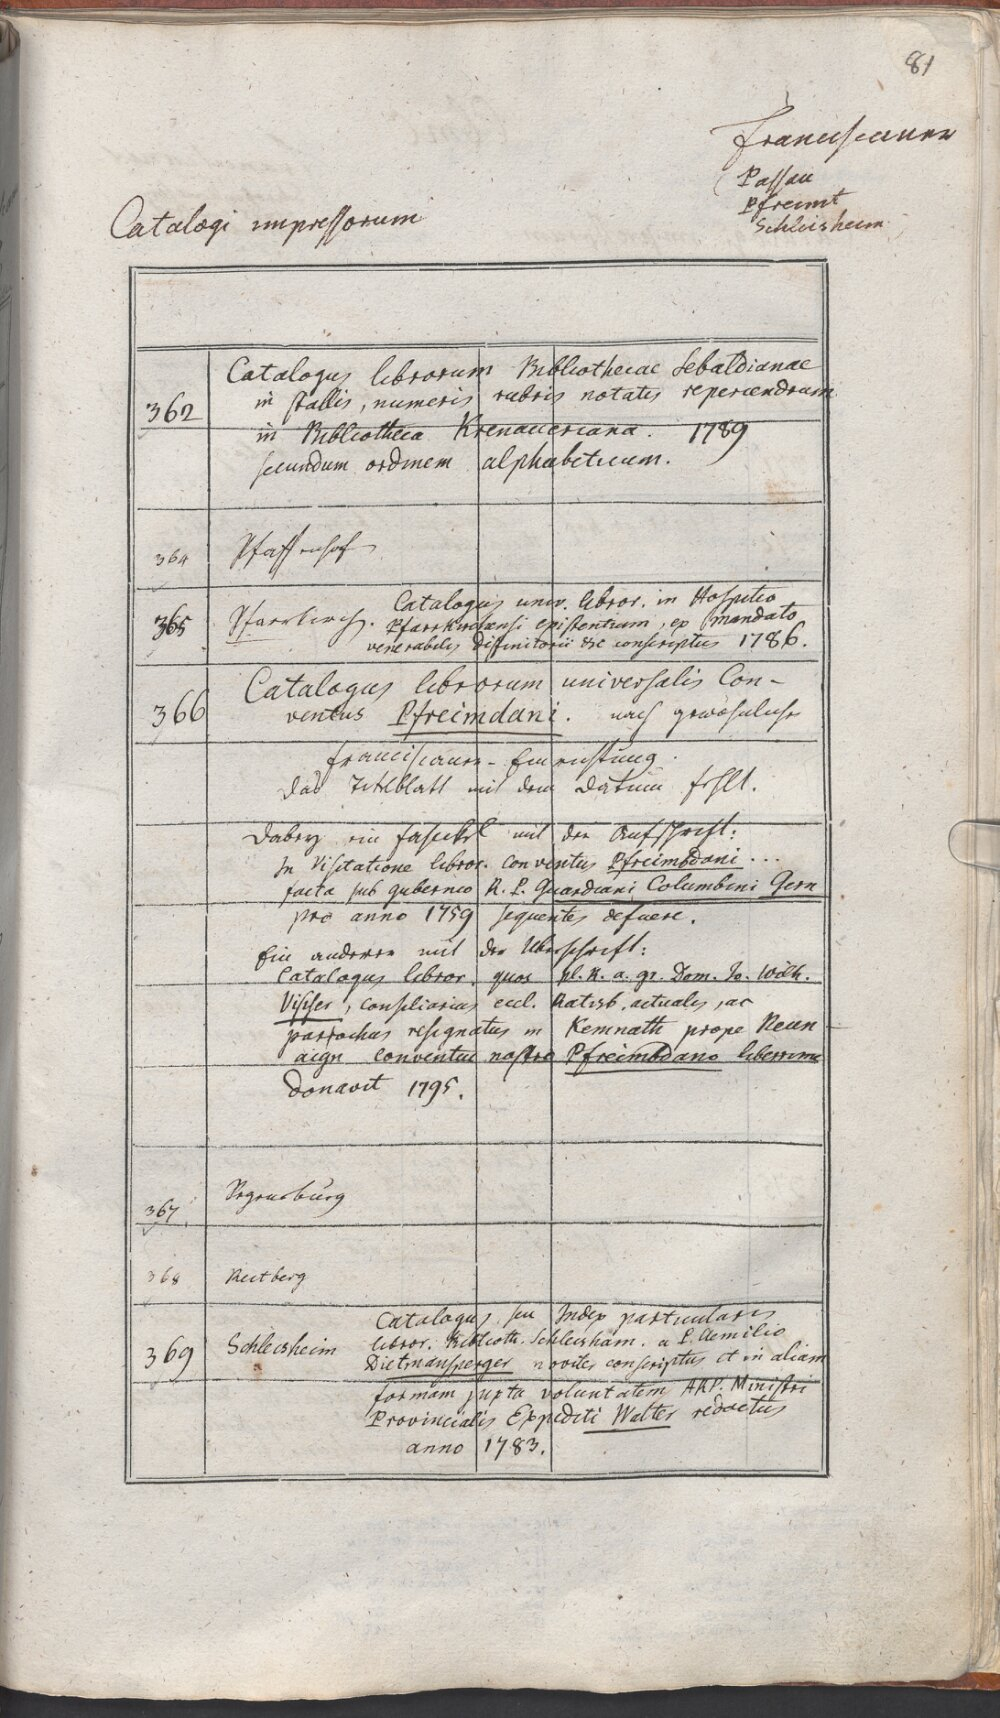 81
Franciscaner
Passau
Pfreimt
Schleisheim
Catalogi impressorum
Catalogus librorum Bibliothecae Sebaldianae
362
in stallis, numeris rubris notatis reperiendrum
in Bibliotheca Krenaueriana. 1789
secundum ordinem alphabeticum.
364 Pfaffenhof
365 Pfarrkirch. Catalogus univ. libror. in Hospitio
Pfarrkirchensi existentium, ex mandato
venerabilis Diffinitorii &c conscriptus 1786.
366 Catalogus librorum universalis Con-
ventus Pfreimdani. nach gewöhnlicher
franciscaner-Einrichtung.
Das Titelblatt mit dem Datum fehlt.
Dabey ein fasickel mit der Aufschrift:
In Visitatione libror. conventus Pfreimbdani ...
facta sub gubernio R. P. Guardiani Columbini Gern
pro anno 1759 sequentes defuere.
Ein anderer mit der Uberschrift:
Catalogus libror. quos pl. R. a. gr. Dom. Jo. Wilh.
Visser, consiliarius eccl. Ratisb. actualis, ac
parrochus resignatus in Kemnath prope Neun
aign conventui nostro Pfreimbdano liberrime
donavit 1795.
367 Regensburg
368 Reitberg
369 Schleisheim Catalogus seu Index particularis
libror. Biblioth. Schleisham. a P. Aemilio
Dietmansperger noviter conscriptus et in aliam
formam juxta voluntatem ARP. Ministri
Provincialis Expediti Walter redactus
anno 1783.